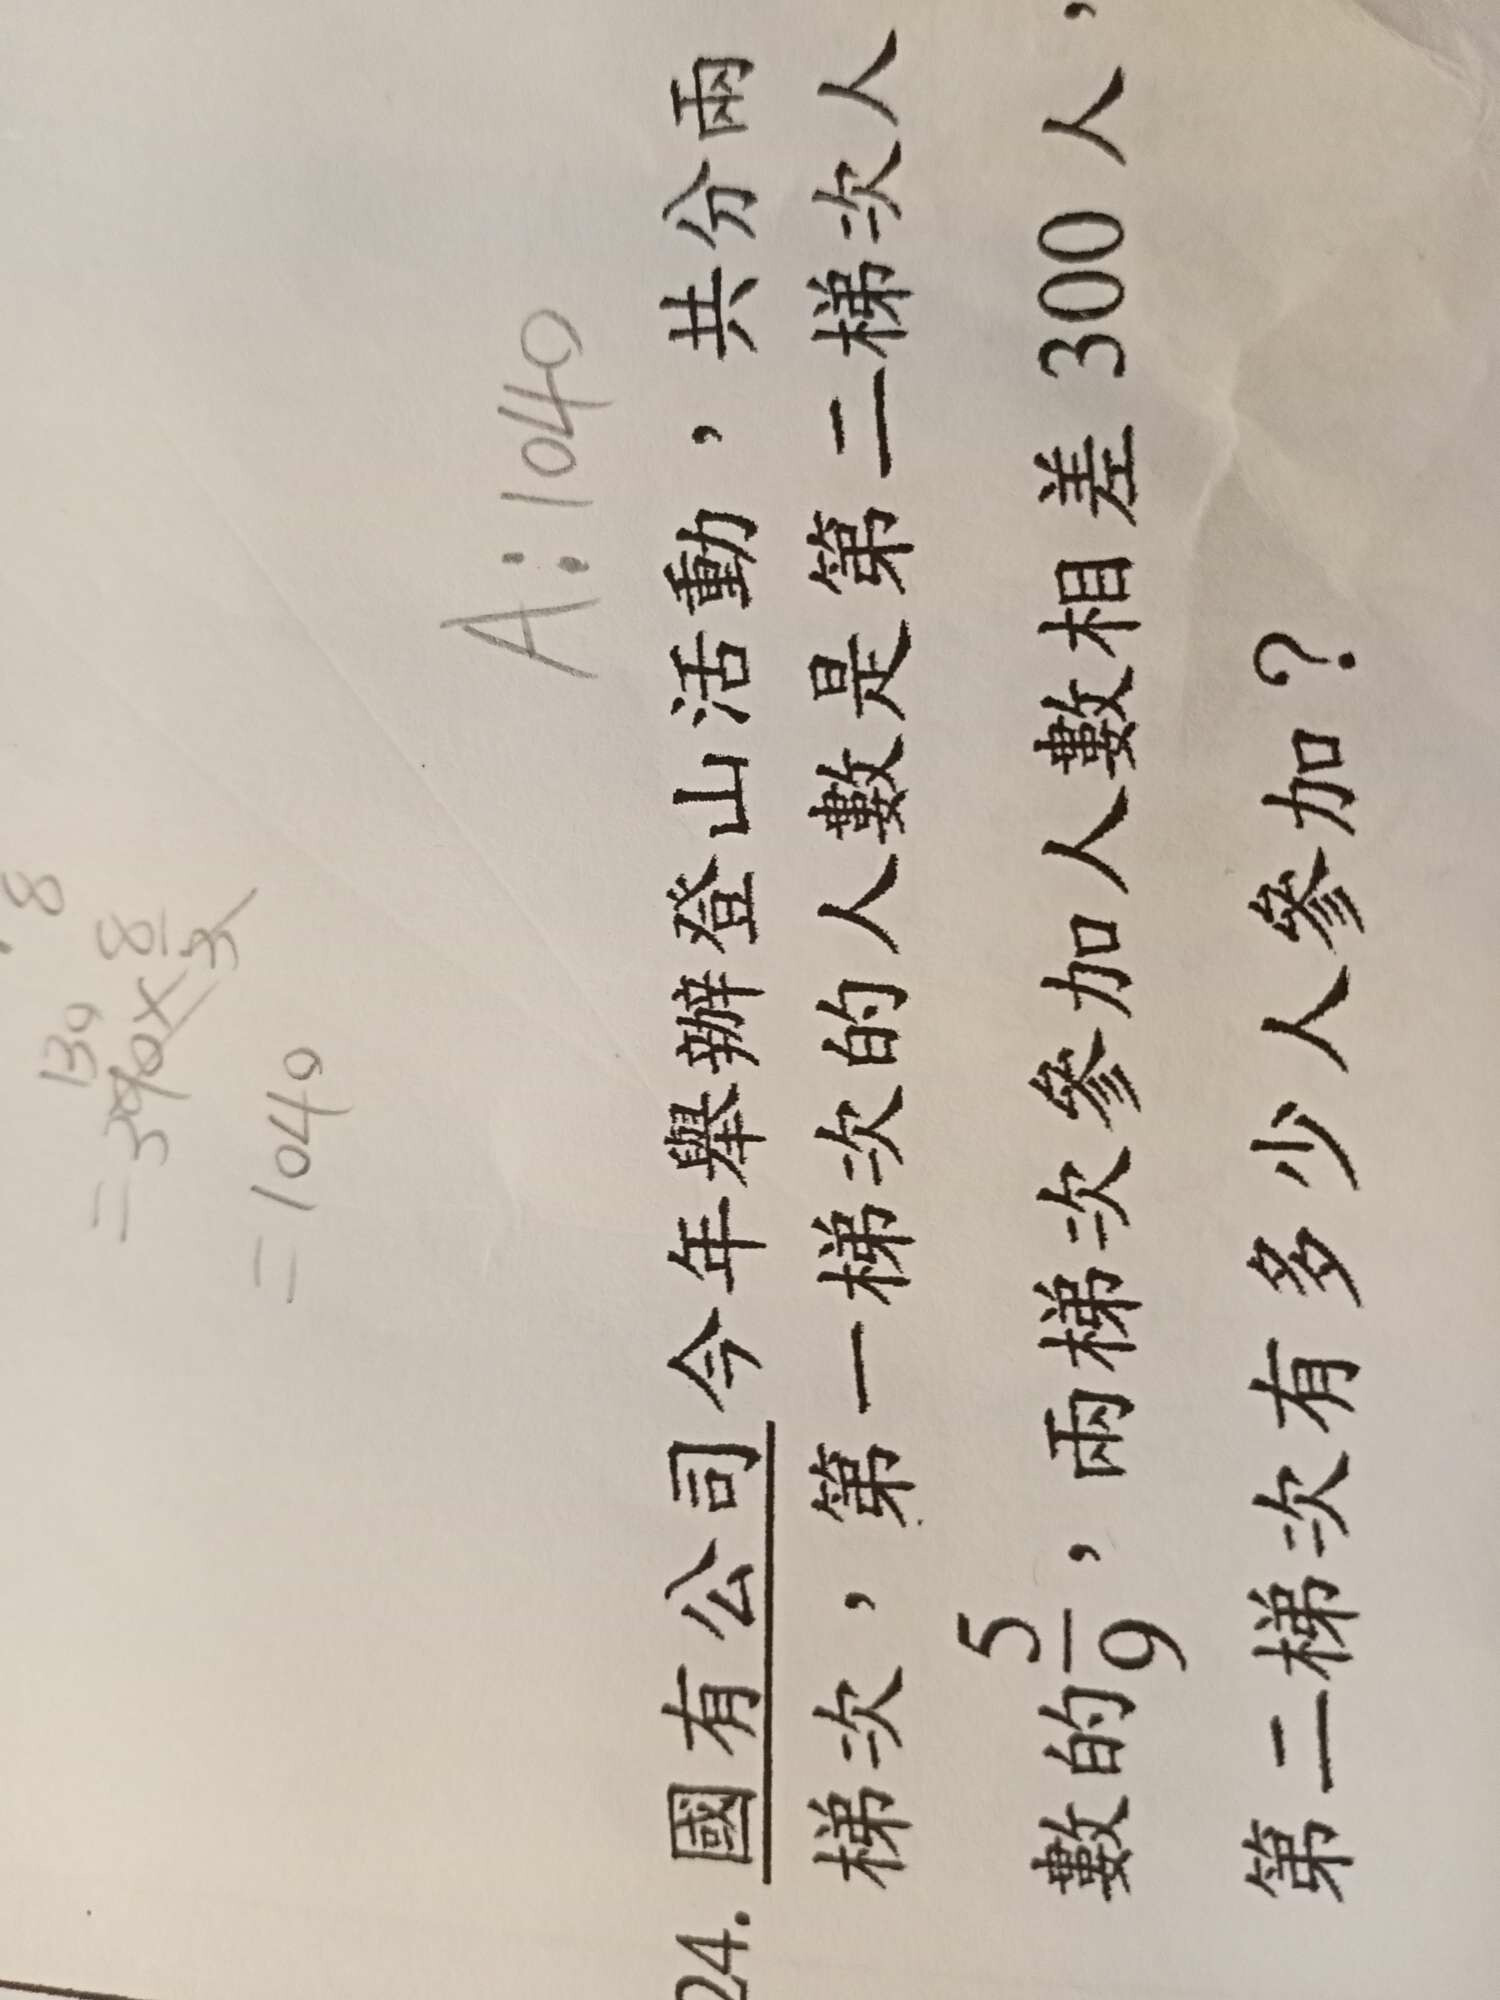 8
130
=390×8/3
=1040
A:1040
24. 國有公司今年舉辦登山活動，共分兩
梯次，第一梯次的人數是第二梯次人
數的5/9，兩梯次參加人數相差300人，
第二梯次有多少人參加？